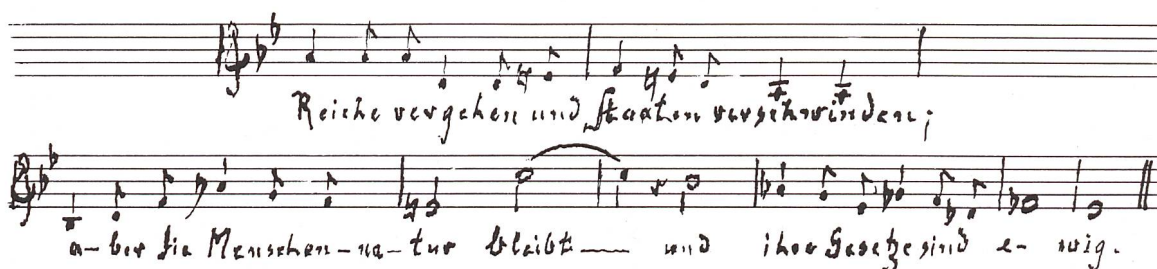 Reiche vergehen und Staaten verschwinden;
a-ber die Menschen-na-tur bleibt— und ihre Gesetze sind e-wig.